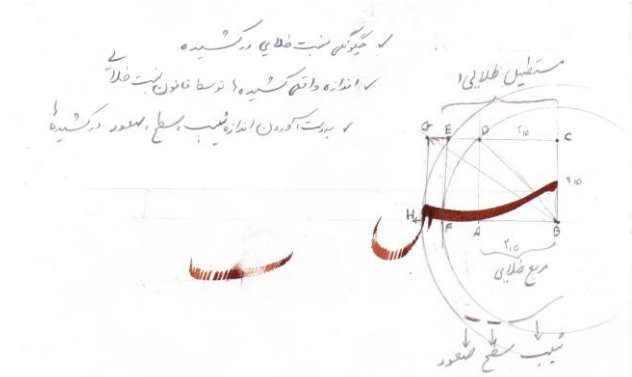 ✓ چگونگی نسبت طلایی در کشیده
✓ اندازه واقعی کشیده ها توسط قانون نسبت طلایی
✓ بدست آوردن اندازه شیب، سطح، صعود در کشیده ها
مستطیل طلایی
G E D ۲,۵ C
۲,۵
H F A B
۲,۵
مربع طلایی
شیب سطح صعود